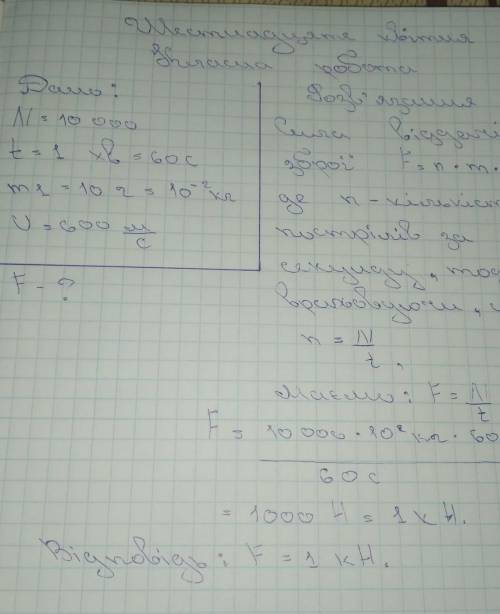 Шестнадцяте квітня
Класна робота
Дано:
N = 10 000
t = 1 хв = 60 с
m1 = 10 г = 10⁻² кг
υ = 600 м/с
F - ?
Розв'язання
Сила віддачі
зброї F = n · m ·
де n - кількіст
пострілів за
секунду, тоді
враховуючи, щ
n = N/t,
Маємо: F = N/t
F = 10 000 · 10² кг · 60
60 с
= 1000 Н = 1 кН.
Відповідь: F = 1 кН.